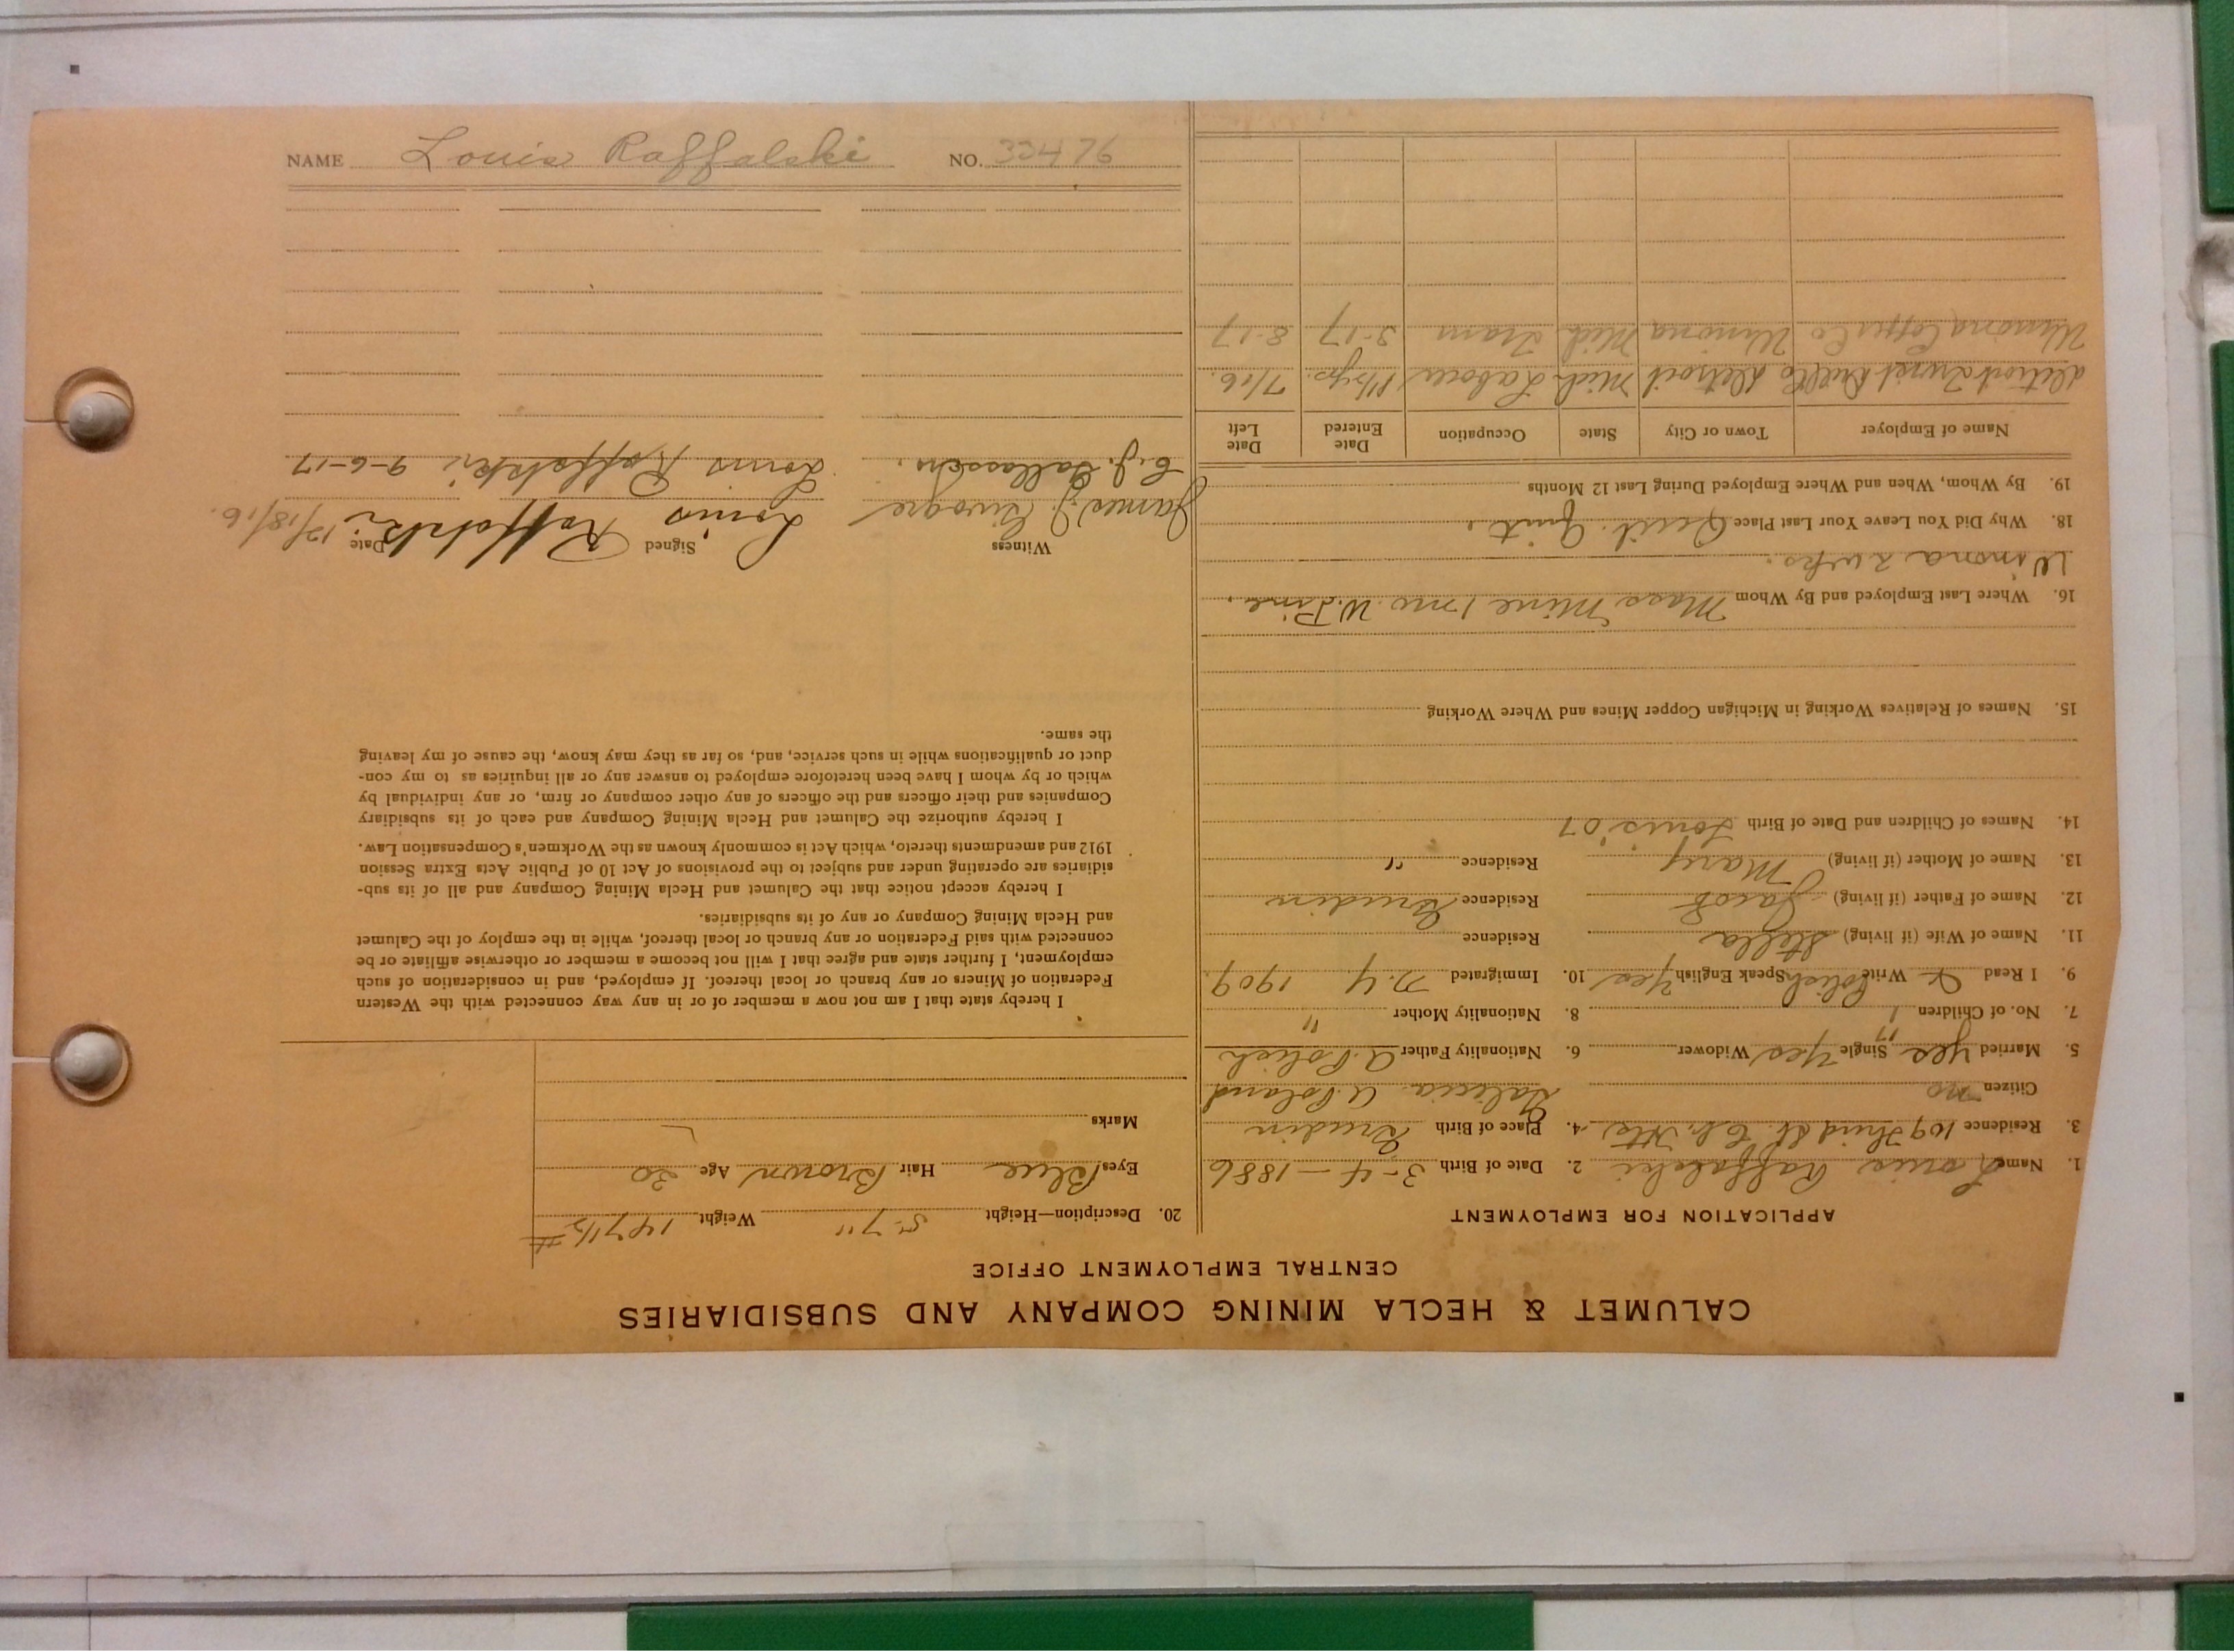 CALUMET & HECLA MINING COMPANY AND SUBSIDIARIES
CENTRAL EMPLOYMENT OFFICE
APPLICATION FOR EMPLOYMENT
1. Name Louis Raffalski 2. Date of Birth 3-4-1886
3. Residence 109 Third St. 4. Place of Birth
Citizen no Galicia A. Poland
5. Married yes Single yes Widower 6. Nationality Father A. Polish
7. No. of Children 1 8. Nationality Mother "
9. I Read & Write Polish Speak English yes 10. Immigrated N.Y 1909
11. Name of Wife (if living) Stella Residence
12. Name of Father (if living) Jacob Residence
13. Name of Mother (if living) Mary Residence "
14. Names of Children and Date of Birth Louis '07
15. Names of Relatives Working in Michigan Copper Mines and Where Working
16. Where Last Employed and By Whom Mass Mine 1 mo. W. Pine.
Winona 2 wks.
18. Why Did You Leave Your Last Place Quit. Quit.
19. By Whom, When and Where Employed During Last 12 Months
Name of Employer Town or City State Occupation Date Entered Date Left
Detroit Twist Drill Co Detroit Mich Laborer 1 1/2 yrs. 7/16.
Winona Copper Co Winona Mich Tram 3-17 8-17
20. Description—Height 5-7" Weight 147 1/2 #
Eyes Blue Hair Brown Age 30
Marks
I hereby state that I am not now a member of or in any way connected with the Western
Federation of Miners or any branch or local thereof. If employed, and in consideration of such
employment, I further state and agree that I will not become a member or otherwise affiliate or be
connected with said Federation or any branch or local thereof, while in the employ of the Calumet
and Hecla Mining Company or any of its subsidiaries.
I hereby accept notice that the Calumet and Hecla Mining Company and all of its sub-
sidiaries are operating under and subject to the provisions of Act 10 of Public Acts Extra Session
1912 and amendments thereto, which Act is commonly known as the Workmen's Compensation Law.
I hereby authorize the Calumet and Hecla Mining Company and each of its subsidiary
Companies and their officers and the officers of any other company or firm, or any individual by
which or by whom I have been heretofore employed to answer any or all inquiries as to my con-
duct or qualifications while in such service, and, so far as they may know, the cause of my leaving
the same.
Witness Signed Date
James J. Louis Raffalski 12/18/16.
Louis Raffalski 9-6-17
NAME Louis Raffalski NO. 33476